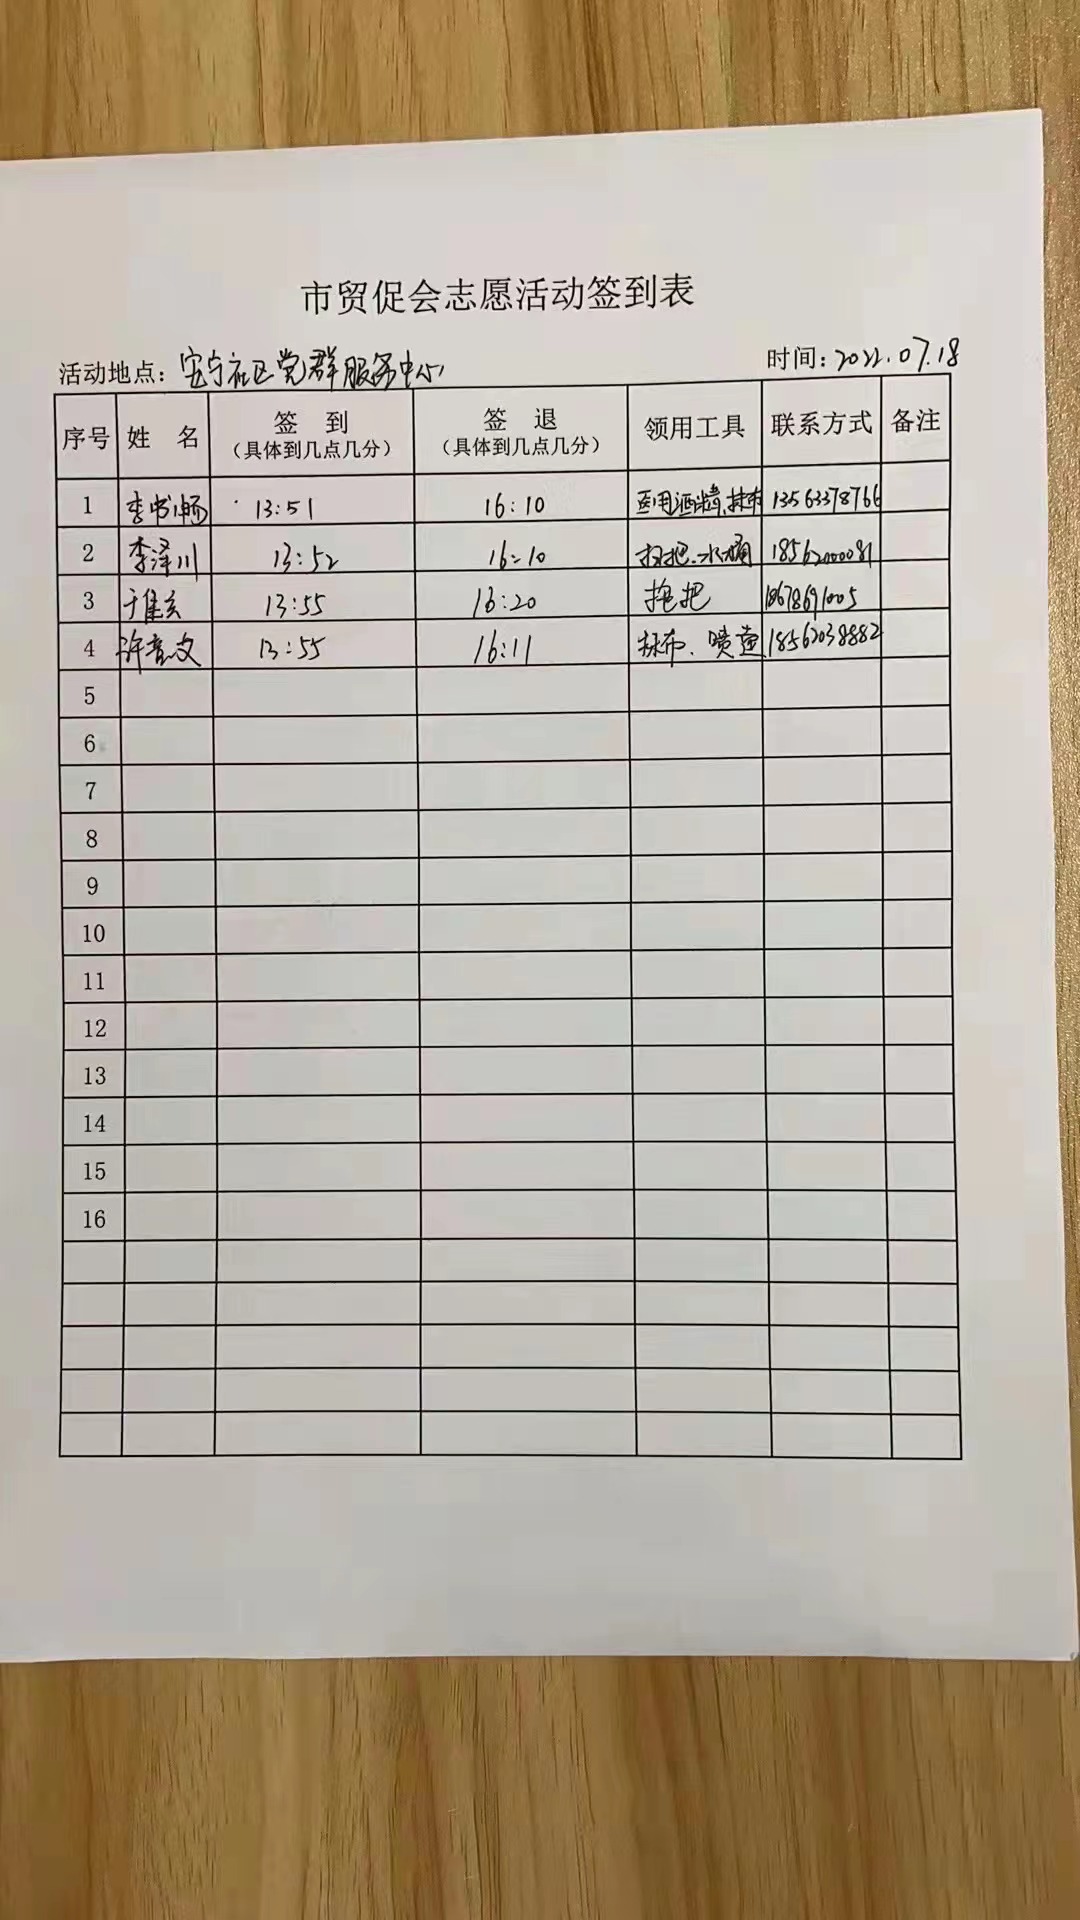 市贸促会志愿活动签到表
活动地点：安宁社区党群服务中心 时间：2022.07.18
序号 姓 名 签 到 签 退 领用工具 联系方式 备注
（具体到几点几分） （具体到几点几分）
1 李书畅 13:51 16:10 医用酒精、抹布 13563378766
2 李泽川 13:52 16:10 扫把、水桶 18562000081
3 13:55 16:20 拖把 18678691005
4 许意文 13:55 16:11 抹布、喷壶 18562038882
5
6
7
8
9
10
11
12
13
14
15
16